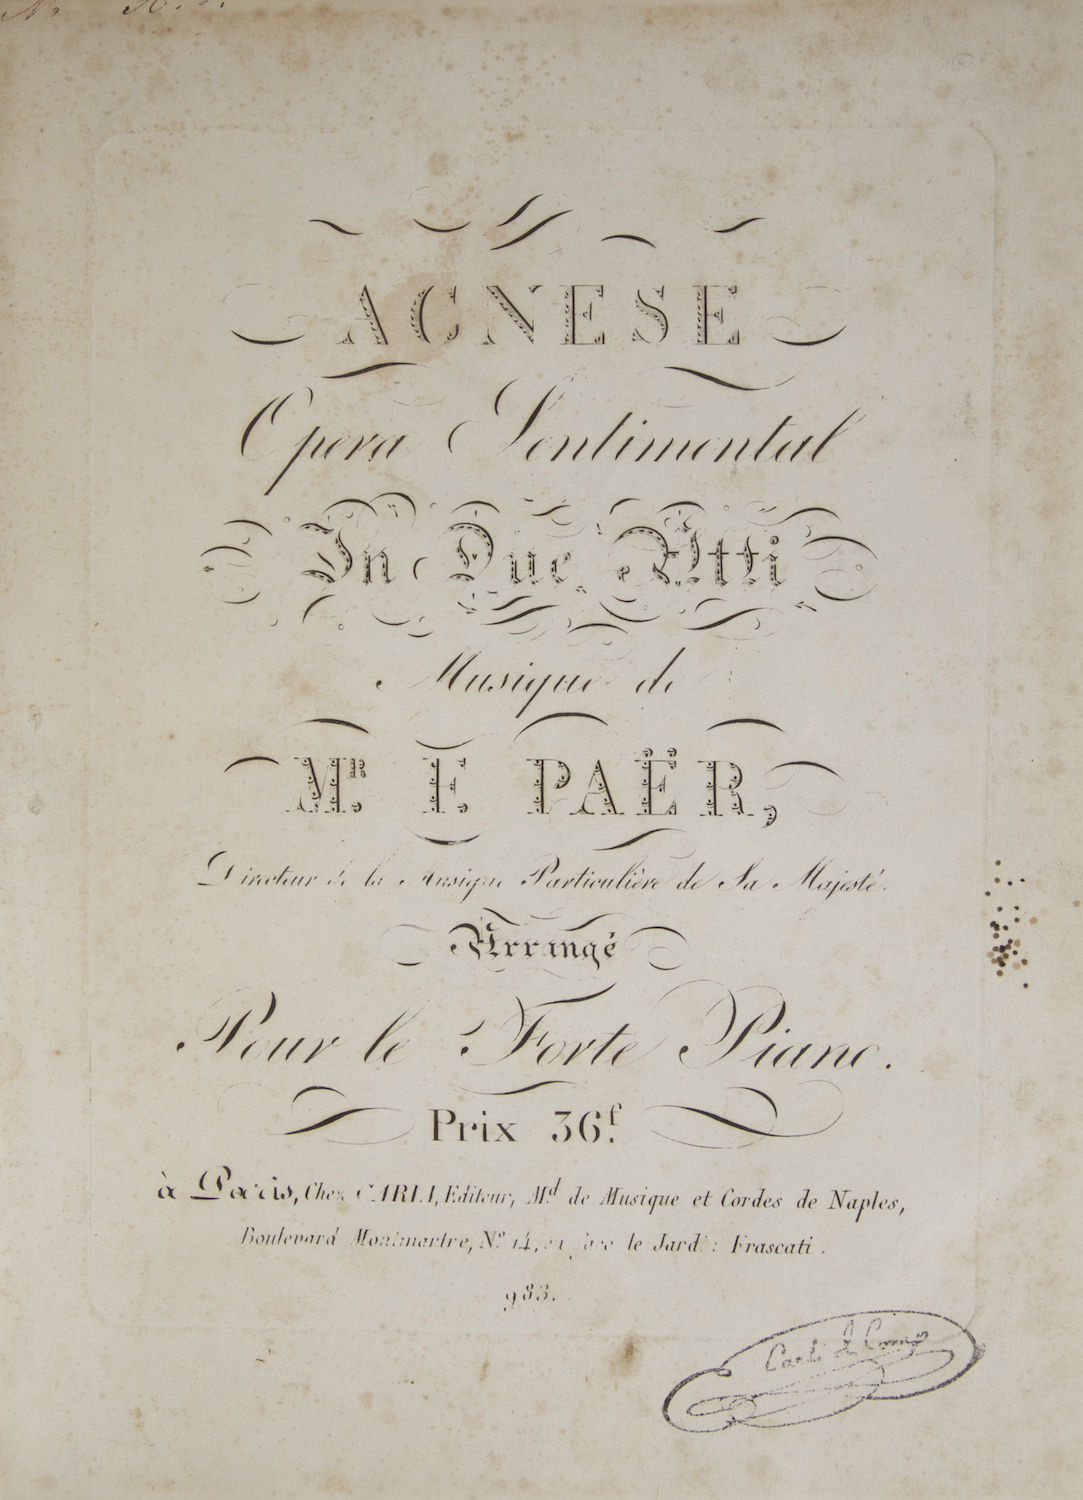 AGNESE
Opera Sentimental
In Due Atti
Musique de
Mr. F. PAËR,
Directeur de la Musique Particulière de Sa Majesté.
Arrangé
Pour le Forte Piano.
Prix 36f.
à Paris, Chez CARLI, Editeur, Md. de Musique et Cordes de Naples,
Boulevard Montmartre, No. 14, en face le Jard: Frascati.
983.
Carli & Comp